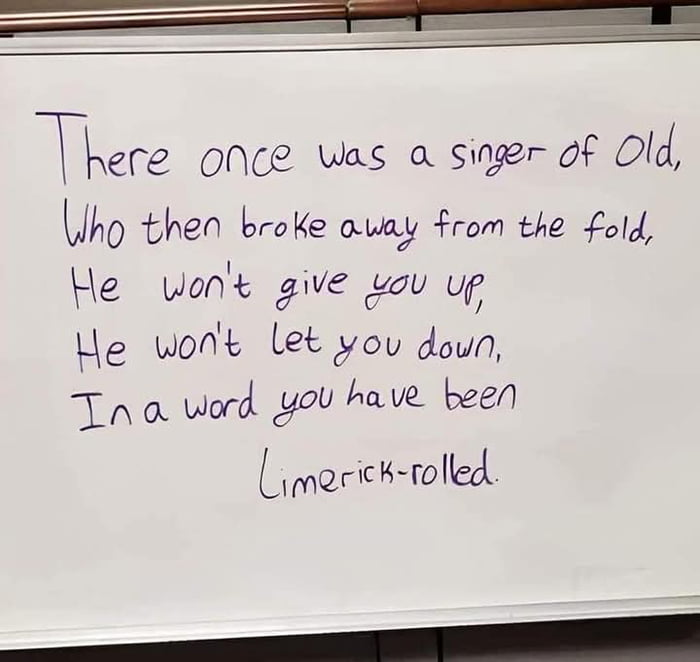 There once was a singer of Old,
Who then broke away from the fold,
He won't give you up,
He won't let you down,
In a word you have been
Limerick-rolled.